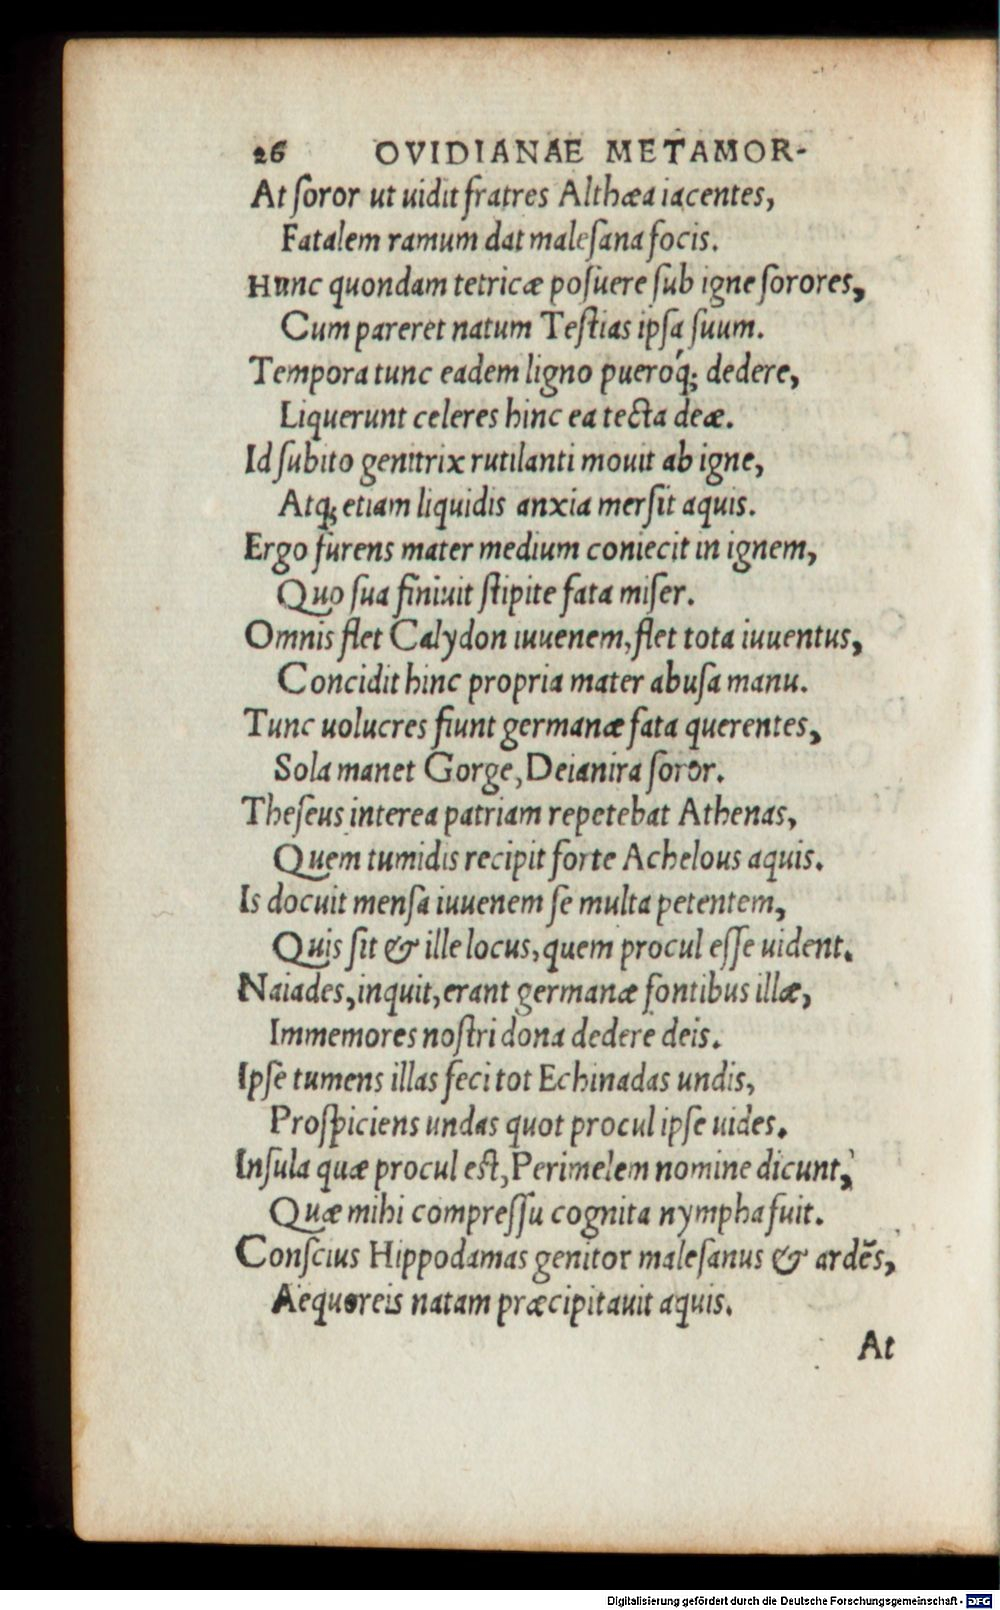 26 OVIDIANAE METAMOR-
At ſoror ut uidit fratres Althæa iacentes,
Fatalem ramum dat maleſana focis.
Hunc quondam tetricæ poſuere ſub igne ſorores,
Cum pareret natum Teſtias ipſa ſuum.
Tempora tunc eadem ligno pueróq; dedere,
Liquerunt celeres hinc ea tecta deæ.
Id ſubito genitrix rutilanti mouit ab igne,
Atq; etiam liquidis anxia merſit aquis.
Ergo furens mater medium coniecit in ignem,
Quo ſua finiuit ſtipite fata miſer.
Omnis flet Calydon iuuenem, flet tota iuuentus,
Concidit hinc propria mater abuſa manu.
Tunc uolucres fiunt germanæ fata querentes,
Sola manet Gorge, Deianira ſoror.
Theſeus interea patriam repetebat Athenas,
Quem tumidis recipit forte Achelous aquis.
Is docuit menſa iuuenem ſe multa petentem,
Quis ſit & ille locus, quem procul eſſe uident.
Naiades, inquit, erant germanæ fontibus illæ,
Immemores noſtri dona dedere deis.
Ipſe tumens illas feci tot Echinadas undis,
Proſpiciens undas quot procul ipſe uides.
Inſula quæ procul eſt, Perimelem nomine dicunt,
Quæ mihi compreſſu cognita nympha fuit.
Conſcius Hippodamas genitor maleſanus & ardẽs,
Aequoreis natam præcipitauit aquis.
At
Digitalisierung gefördert durch die Deutsche Forschungsgemeinschaft - DFG